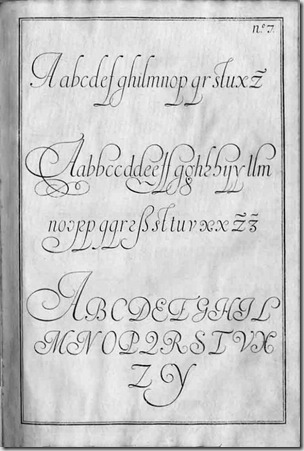 n.º 7.
A abcdefghilmnopqrstuxz
Aabbccddeeffgghhhijyyllm
noopppqqrsßsttuvxxzz
ABCDEFGHIL
MNOPQRSTVX
ZY